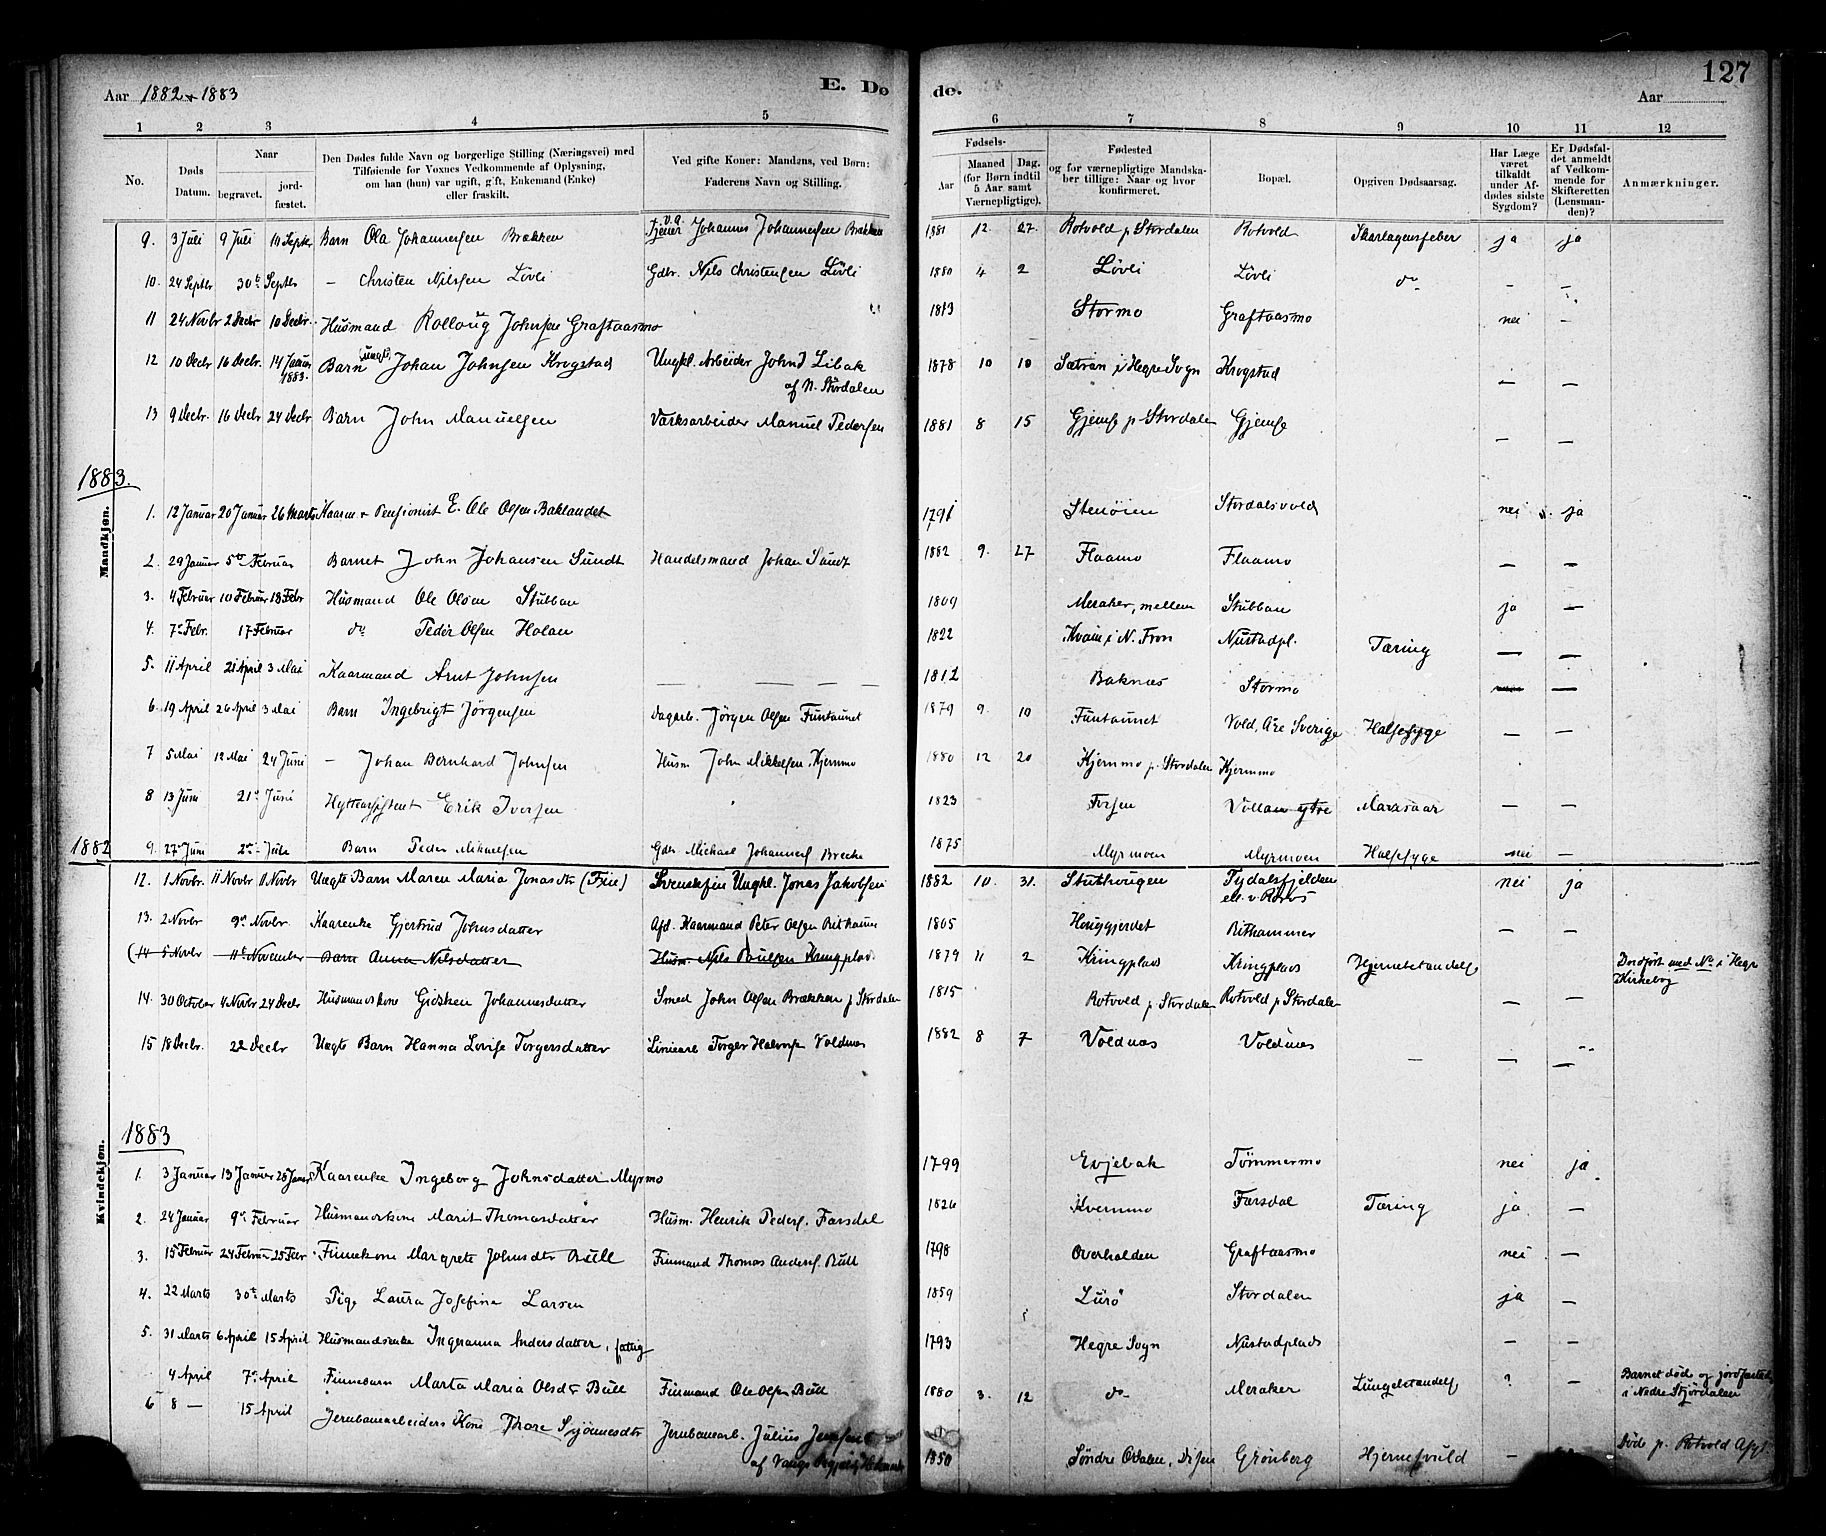 Aar 1882 & 1883
E. Dø
de.
127
Aar
1 2 3 4 5 6 7 8 9 10 11 12
No.
Døds Datum.
Naar
begravet.
jordfæstet.
Den Dødes fulde Navn og borgerlige Stilling (Næringsvei) med Tilføiende for Voxnes Vedkommende af Oplysning, om han (hun) var ugift, gift, Enkemand (Enke) eller fraskilt.
Ved gifte Koner: Mandens, ved Børn: Faderens Navn og Stilling.
Fødsels-
Aar
Maaned Dag. (for Børn indtil 5 Aar samt Værnepligtige).
Fødested og for værnepligtige Mandskaber tillige: Naar og hvor konfirmeret.
Bopæl.
Opgiven Dødsaarsag.
Har Læge været tilkaldt under Afdødes sidste Sygdom?
Er Dødsfaldet anmeldt af Vedkommende for Skifteretten (Lensmanden)?
Anmærkninger.
9. 3 Juli 9 Juli 10 Septbr Barn Ola Johannesen Brækken Tjener Johannes Johannesen Brækken 1881 12. 27. Rotvold p Stordalen Rotvold Skarlagensfeber ja ja
10. 24 Septbr 30t Septbr – Christen Nilssen Løvli Gdbr. Nils Christensen Løvli 1880 4 2 Løvli Løvli do – –
11 24 Novbr 2 Decbr 10 Decbr. Husmand Rolloug Johnsen Graftaasmo 1813 Stormo Graftaasmo nei –
12 10 Decbr 16 Decbr. 14 Januar 1883. Barn uægte Johan Johnsen Krogstad Ungkl. Arbeider John J Libak af N. Størdalen 1878 10 10 Sætran i Hegre Sogn Krogstad – –
13 9 Decbr. 16 Decbr 24 Decbr Barn John Manuelsen Værksarbeider Manuel Pedersen 1881 8 15 Gjemse p. Stordalen Gjemse – –
1883.
Mandkjøn.
1. 12 Januar 20 Januar 26 Marts Kaarm & Pensionist E. Ole Olsen Baklandet 1791 Stenöien Stordalsvold nei ja
2. 29 Januar 5te Februar Barnet John Johansen Sundt Handelsmand Johan Sundt 1882 9. 27 Flaamo Flaamo – –
3. 4 Februar 10 Februar 18 Febr Husmand Ole Olsen Stubban 1809 Meraker, mellem Stubban ja –
4. 7de Febr. 17 Februar do Peder Olsen Holan 1822 Kvam i N. Fron Nustadpl. Tæring – –
5. 11 April 21 April 3 Mai Kaarmand Arnt Johnsen – – – – 1812 Baknæs Stormo –
6. 19 April 26 April 3 Mai Barn Ingebrigt Jørgensen Dagarb. Jörgen Olsen Funtaunet 1879 9. 10 Funtaunet Vold, Åre Sverige Halsesyge – –
7 5 Mai 12 Mai 24 Juni – Johan Bernhard Johnsen Husm John Mikkelsen Kjernmo 1880 12 20 Kjernmo p. Stordalen Kjernmo – –
8 13 Juni 21de Juni Hytteassistent Erik Iversen 1823 Fossen Vollan ytre Mavesaar – –
9. 27 Juni 2den Julii Barn Peder Mikaelsen Gdbr Michael Johannes. Brecke 1875 Myrmoen Myrmoen Halsesyge nei –
1882
12. 1 Novbr. 11 Novbr Novbr Uægte Barn Maren Maria Jonasdtr (Fin) Svenskfin Ungkl. Jonas Jakobsen 1882 10. 31. Stuthougen Tydalsfjeldene ell. v. Röros nei ja
13. 2 Novbr 9de Novbr. Kaarenke Gjertrud Johnsdatter Afd. Kaarmand Peter Olsen Rithaum 1805 Houggjerdet Rithammer – –
(14 5 Novbr 11te November Barn Anna Nilsdatter Husm. Nils Paulsen Kringplad. 1879 11 2 Kringplads Kringplads Hjernebetændelse Dødført med No i Hegre Kirkebog
14. 30 October 4 Novbr 24 Decbr Husmandskone Gidsken Johannesdatter Smed John Olsen Brækken p Stordalen 1815 Rotvold p Stordalen Rotvold p Stordalen – –
15 18 Decbr. 22 Decbr Uægte Barn Hanna Lovise Torgersdatter Liniearb Torger Halvors Voldnæs 1882 8 7 Voldnæs Voldnæs – – –
1883
Kvindekjøn.
1. 3 Januar 13 Januar 28 Januar Kaarenke Ingeborg Johnsdatter Myrmo 1799 Evjebak Tømmermo nei ja
2. 24 Januar 9de Februar Husmandskone Marit Thomasdatter Husm. Henrik Peders. Farsdal 1826 Kvernmo Farsdal Tæring ja –
3. 15 Februar 24 Februar 25 Febr Finnekone Margrete Johnsdtr Bull Finmand Thomas Anders. Bull 1798 Overhalden Graftaasmo nei –
4. 22 Marts 30te Marts Pige Laura Josefine Larsen 1859 Lurö Stordalen ja –
5. 31 Marts 6 April 15 April Husmandsenke Ingeranna Andersdatter, fattig 1793 Hegre Sogn Nustadplads – –
4 April 7de April Finnebarn Marta Maria Olsdtr Bull Finmand Ole Olsen Bull 1880 3. 12 do Meraker Lungebetændelse ? – Barnet død og jordfæstet i Nedre Stjördalen
6 8 – 15 April Jernbanearbeiders Kone Thore Jernbanearb. Julius af Vangs 1850 Søndre Odalen, Grönberg – Død p. Rotvold